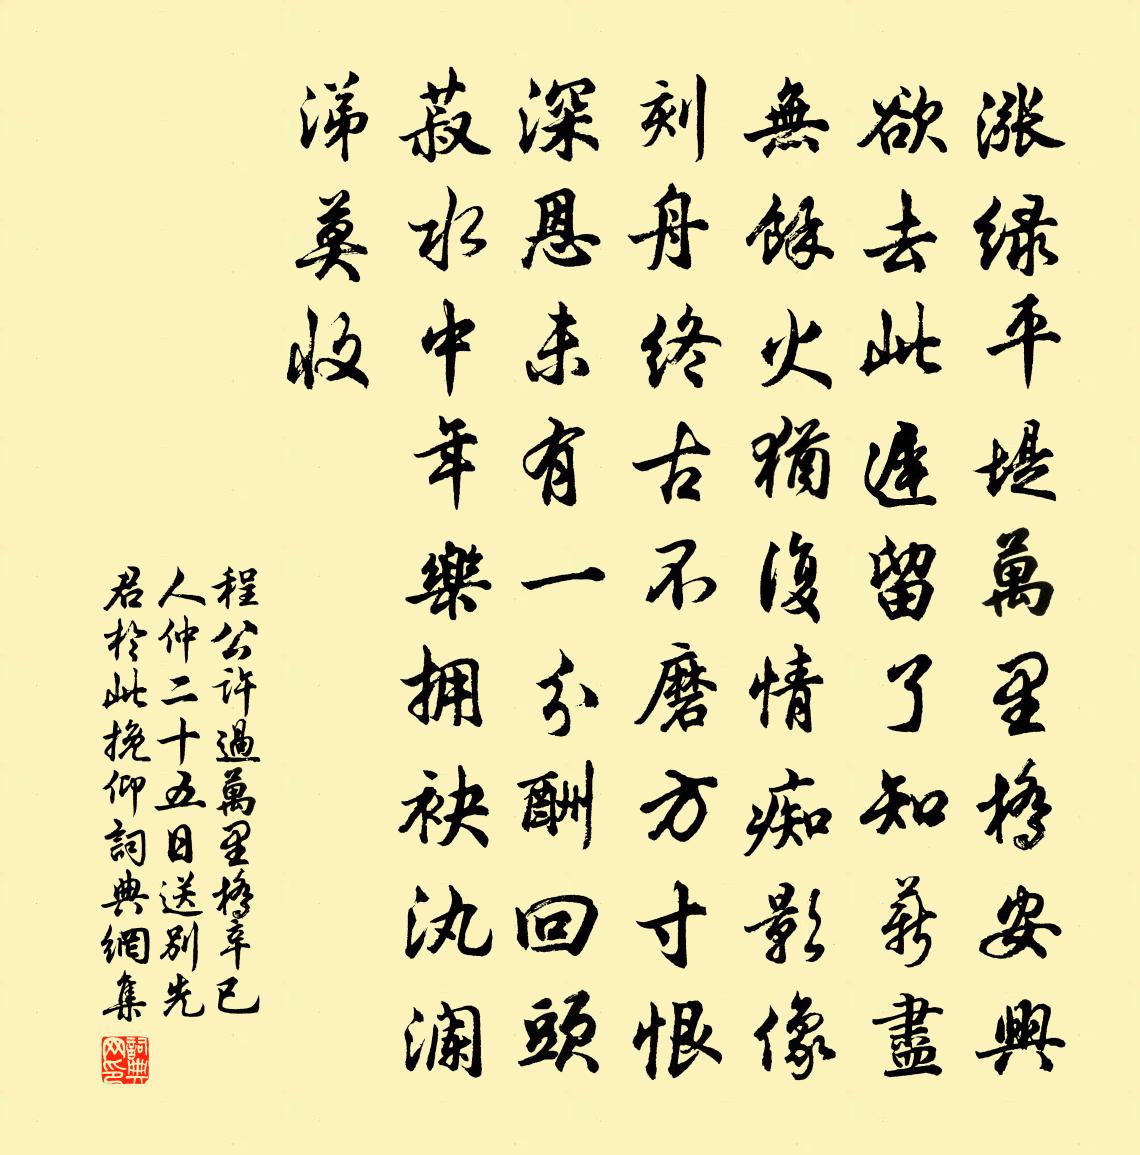 漲緑平堤萬里橋安輿
欲去此遲留了知薪盡
無餘火猶復情痴影像
刻舟終古不磨方寸恨
深恩未有一分酬回頭
菽水中年樂拥袂汍瀾
涕莫收
程公許過萬里橋辛已
人仲二十五日送别先
君於此挽仰詞典網集
詞典网印